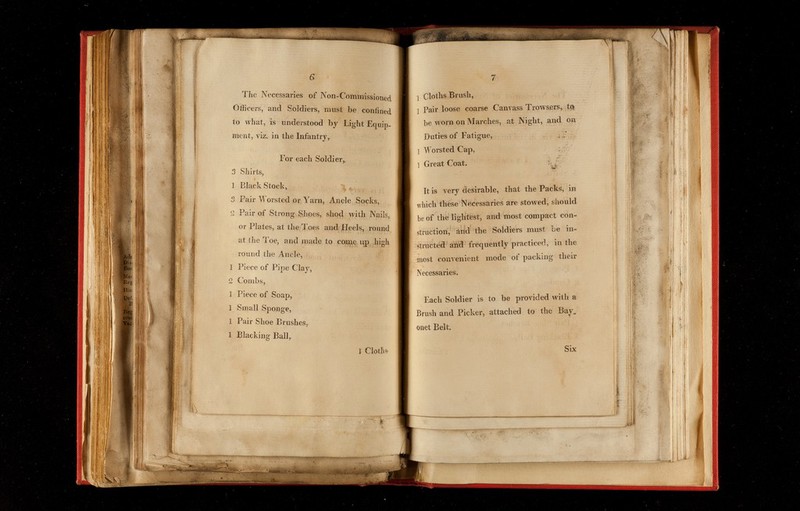 6
The Necessaries of Non-Commissioned
Officers, and Soldiers, must be confined
to what, is understood by Light Equip-
ment, viz. in the Infantry,
For each Soldier,
3 Shirts,
1 Black Stock,
3 Pair Worsted or Yarn, Ancle Socks,
2 Pair of Strong Shoes, shod with Nails,
or Plates, at the Toes and Heels, round
at the Toe, and made to come up high
round the Ancle,
1 Piece of Pipe Clay,
2 Combs,
1 Piece of Soap,
1 Small Sponge,
1 Pair Shoe Brushes,
1 Blacking Ball,
1 Cloths
7
1 Cloths Brush,
1 Pair loose coarse Canvass Trowsers, to
be worn on Marches, at Night, and on
Duties of Fatigue,
1 Worsted Cap,
1 Great Coat.
It is very desirable, that the Packs, in
which these Necessaries are stowed, should
be of the lightest, and most compact con-
struction, and the Soldiers must be in-
structed and frequently practiced, in the
most convenient mode of packing their
Necessaries.
Each Soldier is to be provided with a
Brush and Picker, attached to the Bay-
onet Belt.
Six